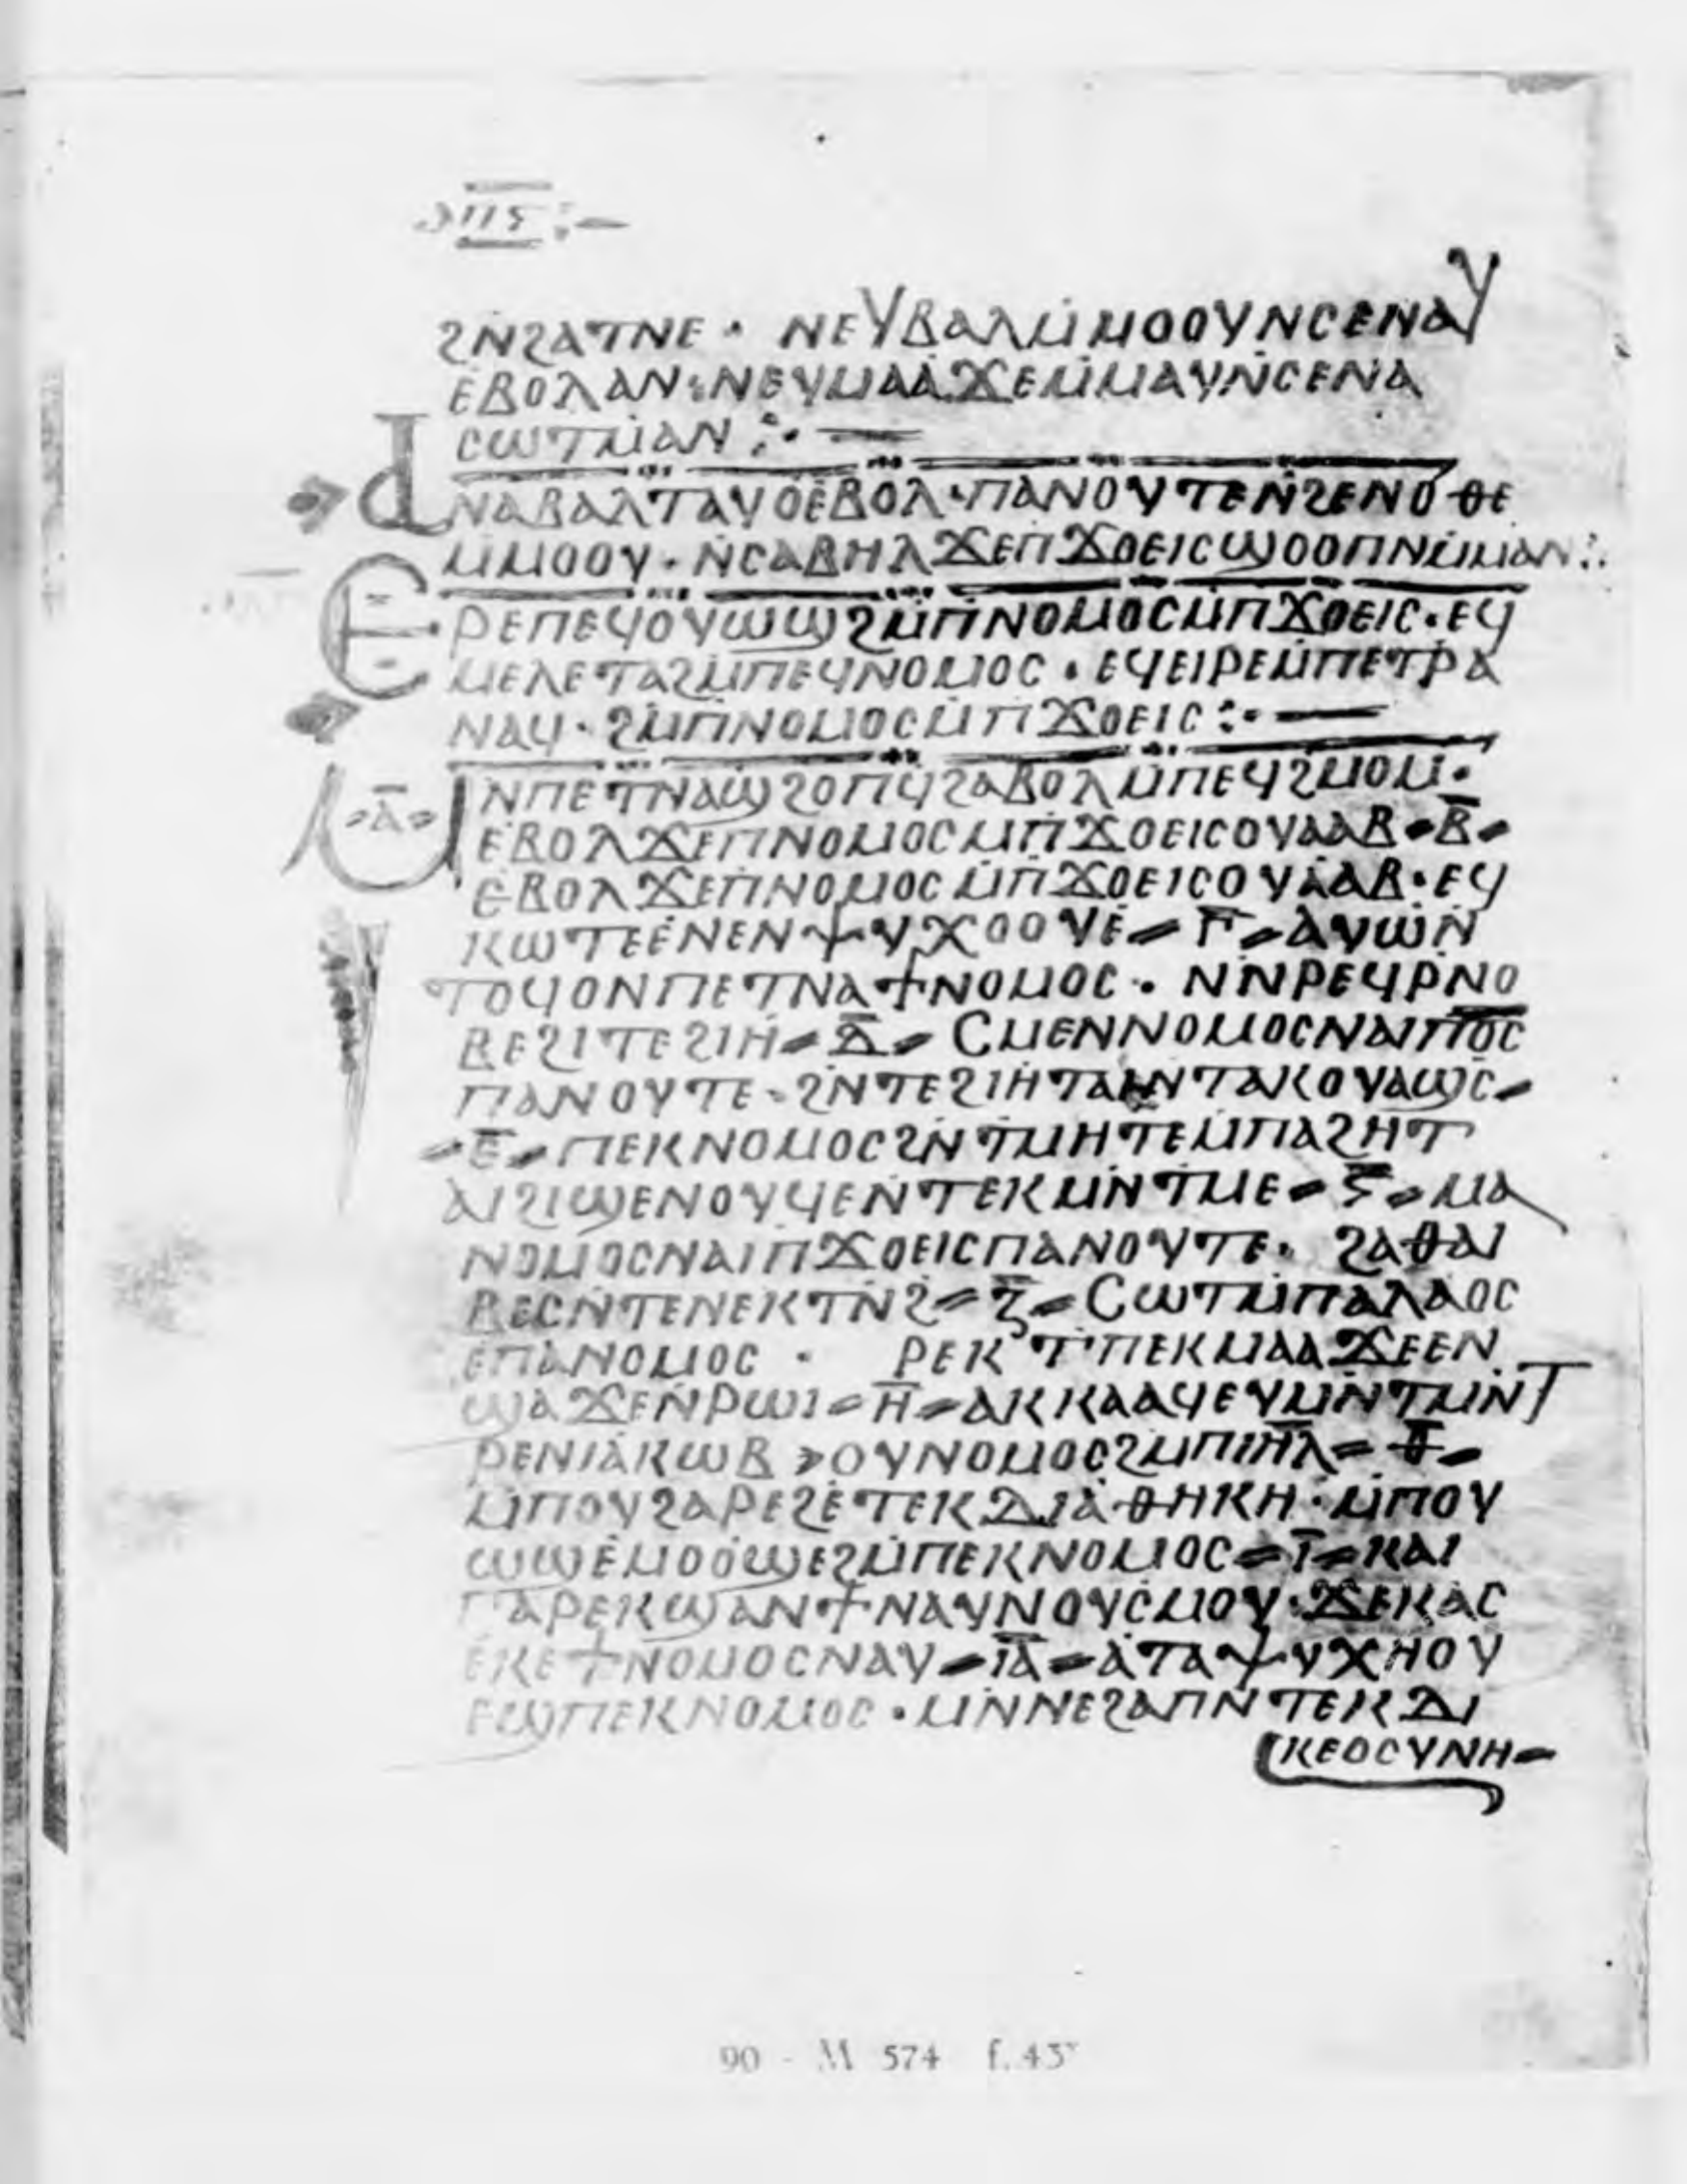 ⲡⲋ
ϩⲛϩⲁⲧⲛⲉ · ⲛⲉⲩⲃⲁⲗⲙ̇ⲙⲟⲟⲩⲛⲥⲉⲛⲁⲩ
ⲉⲃⲟⲗⲁⲛ : ⲛⲉⲩⲙⲁⲁϫⲉⲙ̇ⲙⲁⲩⲛ̇ⲥⲉⲛⲁ
ⲥⲱⲧⲙⲁⲛ :· —
ⲁⲛⲁⲃⲁⲗⲧⲁⲩⲟⲉ̇ⲃⲟⲗ · ⲡⲁⲛⲟⲩⲧⲉⲛ̇ϩⲉⲛⲟⲑⲉ
ⲙ̇ⲙⲟⲟⲩ · ⲛ̇ⲥⲁⲃⲏⲗϫⲉⲡϫⲟⲉⲓⲥϣⲟⲟⲡⲛⲙ̇ⲙⲁⲛ :·
ⲉⲣⲉⲡⲉϥⲟⲩⲱϣϩⲙ̇ⲡⲛⲟⲙⲟⲥⲙ̇ⲡϫⲟⲉⲓⲥ · ⲉϥ
ⲙⲉⲗⲉⲧⲁϩⲙ̇ⲡⲉϥⲛⲟⲙⲟⲥ · ⲉϥⲉⲓⲣⲉⲙ̇ⲡⲉⲧⲣⲁ
ⲛⲁϥ · ϩⲙ̇ⲡⲛⲟⲙⲟⲥⲙ̇ⲡϫⲟⲉⲓⲥ :· —
ⲙⲛⲡⲉⲧⲛⲁϣϩⲟⲡϥϩⲁⲃⲟⲗⲙ̇ⲡⲉϥϩⲙⲟⲙ ·
⸗ⲁ̅⸗ ⲉⲃⲟⲗϫⲉⲡⲛⲟⲙⲟⲥⲙ̇ⲡϫⲟⲉⲓⲥⲟⲩⲁⲁⲃ⸗ⲃ̅⸗
ⲉⲃⲟⲗϫⲉⲡⲛⲟⲙⲟⲥⲙ̇ⲡϫⲟⲉⲓⲥⲟⲩⲁⲁⲃ · ⲉϥ
ⲕⲱⲧⲉⲉ̇ⲛⲉⲛⲯⲩⲭⲟⲟⲩⲉ̇⸗ⲅ̅⸗ⲁⲩⲱⲛ̇
ⲧⲟϥⲟⲛⲡⲉⲧⲛⲁϯⲛⲟⲙⲟⲥ · ⲛⲛ̇ⲣⲉϥⲣⲛⲟ
ⲃⲉϩⲓⲧⲉϩⲓⲏ⸗ⲇ̅⸗ ⲥⲙⲉⲛⲛⲟⲙⲟⲥⲛⲁⲓⲡ̅ⲟ̅ⲥ̅
ⲡⲁⲛⲟⲩⲧⲉ · ϩⲛⲧⲉϩⲓⲏⲧⲁⲓⲛⲧⲁⲕⲟⲩⲁϣⲥ⸗
⸗ⲉ̅⸗ⲡⲉⲕⲛⲟⲙⲟⲥϩⲛ̇ⲧⲙⲏⲧⲉⲙ̇ⲡⲁϩⲏⲧ
ⲁⲓϩⲓϣⲉⲛⲟⲩϥⲉⲛ̇ⲧⲉⲕⲙⲛ̇ⲧⲙⲉ⸗ⲋ̅⸗ⲙⲁ
ⲛⲟⲙⲟⲥⲛⲁⲓⲡϫⲟⲉⲓⲥⲡⲁⲛⲟⲩⲧⲉ · ϩⲁⲑⲁⲓ
ⲃⲉⲥⲛ̇ⲧⲉⲛⲉⲕⲧⲛϩ⸗ⲍ̅⸗ⲥⲱⲧⲙ̇ⲡⲁⲗⲁⲟⲥ
ⲉⲡⲁⲛⲟⲙⲟⲥ · ⲣⲉⲕⲧⲡⲉⲕⲙⲁⲁϫⲉⲉⲛ
ϣⲁϫⲉⲛ̇ⲣⲱⲓ⸗ⲏ̅⸗ⲁⲕⲕⲁⲁϥⲉⲩⲙⲛ̇ⲧⲙⲛ̇ⲧ
ⲣⲉⲛⲓⲁⲕⲱⲃ > ⲟⲩⲛⲟⲙⲟⲥϩⲙ̇ⲡⲓⲏ̅ⲗ̅⸗ⲑ̅⸗
ⲙ̇ⲡⲟⲩϩⲁⲣⲉϩⲉ̇ⲧⲉⲕⲇⲓⲁⲑⲏⲕⲏ · ⲙ̇ⲡⲟⲩ
ⲱϣⲉ̇ⲙⲟⲟϣⲉϩⲙ̇ⲡⲉⲕⲛⲟⲙⲟⲥ⸗ⲓ̅⸗ⲕⲁⲓ
ⲅⲁⲣⲉⲕϣⲁⲛϯⲛⲁⲩⲛⲟⲩⲥⲙⲟⲩ · ϫⲉⲕⲁⲥ
ⲉⲕⲉϯⲛⲟⲙⲟⲥⲛⲁⲩ⸗ⲓ̅ⲁ̅⸗ⲁⲧⲁⲯⲩⲭⲏⲟⲩ
ⲉϣⲡⲉⲕⲛⲟⲙⲟⲥ · ⲙⲛ̇ⲛⲉϩⲁⲡⲛ̇ⲧⲉⲕⲇⲓ
ⲕⲉⲟⲥⲩⲛⲏ⸗
90 - M 574 f. 43ᵛ